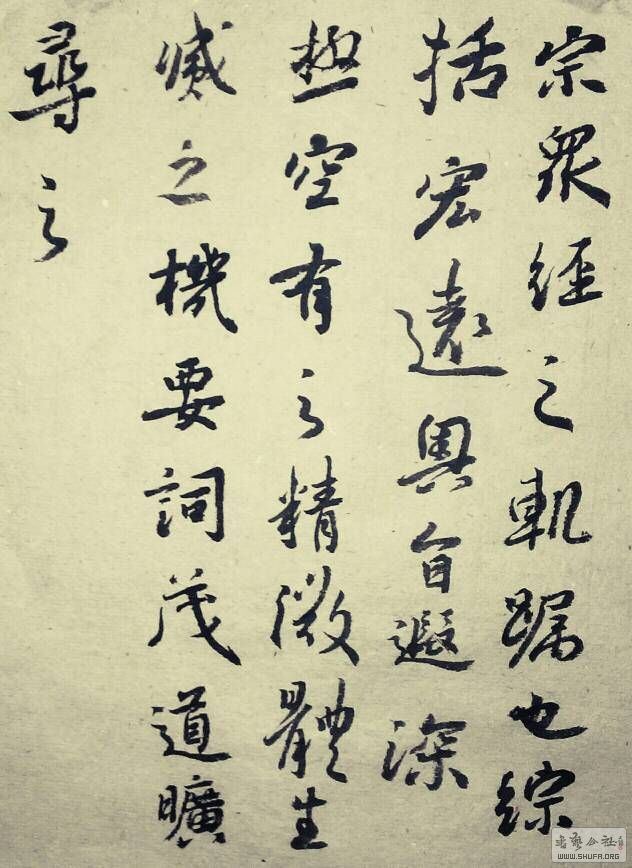 宗衆經之軌躅也綜
括宏遠奧旨遐深
極空有之精微體生
滅之機要詞茂道曠
尋之
书艺公社
WWW.SHUFA.ORG